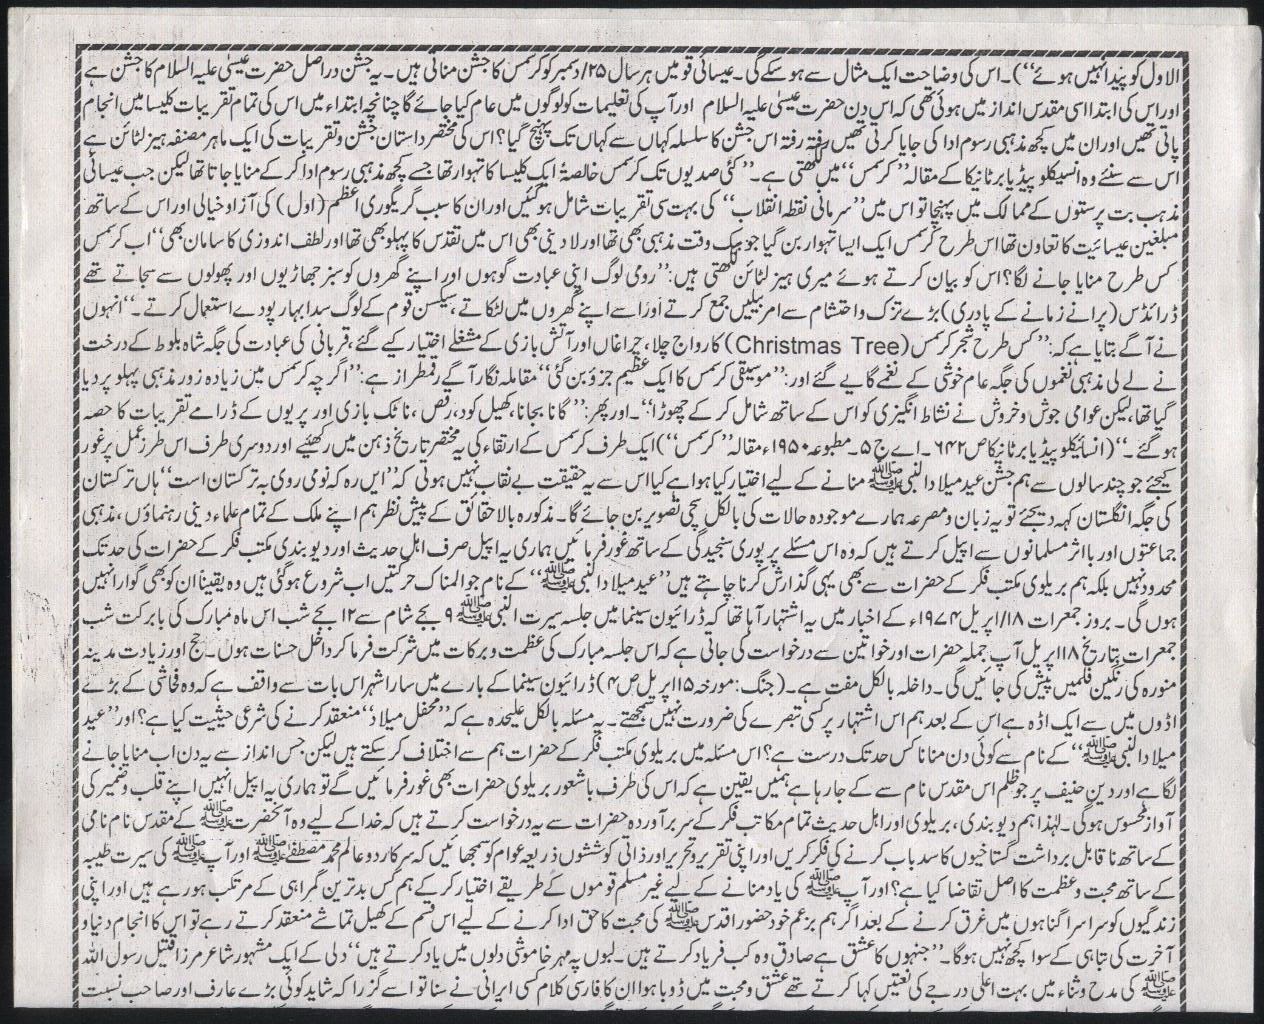 الاول کو پیدا نہیں ہوئے‘‘)۔ اس کی وضاحت ایک مثال سے ہو سکے گی۔ عیسائی قومیں ہر سال ۲۵/دسمبر کو کرسمس کا جشن مناتی ہیں۔ یہ جشن دراصل حضرت عیسیٰ علیہ السلام کا جشن ہے
اور اس کی ابتدا اسی مقدس انداز میں ہوئی تھی کہ اس دن حضرت عیسیٰ علیہ السلام اور آپ کی تعلیمات کو لوگوں میں عام کیا جائے گا چنانچہ ابتداء میں اس کی تمام تقریبات کلیسا میں انجام
پاتی تھیں اور ان میں کچھ مذہبی رسوم ادا کی جایا کرتی تھیں رفتہ رفتہ اس جشن کا سلسلہ کہاں سے کہاں تک پہنچ گیا؟ اس کی مختصر داستان جشن و تقریبات کی ایک ماہر مصنفہ ہیزلٹائن ہے
اس سے سنئے وہ انسیکلو پیڈیا برٹانیکا کے مقالہ’’ کرسمس‘‘ میں لکھتی ہے۔’’ کئی صدیوں تک کرسمس خالصۃً ایک کلیسا کا تہوار تھا جسے کچھ مذہبی رسوم ادا کر کے منایا جاتا تھا لیکن جب عیسائی
مذہب بت پرستوں کے ممالک میں پہنچا تو اس میں’’سرمائی نقطہ انقلاب‘‘ کی بہت سی تقریبات شامل ہو گئیں اور ان کا سبب گریگوری اعظم (اول) کی آزاد خیالی اور اس کے ساتھ
مبلغین عیسائیت کا تعاون تھا اس طرح کرسمس ایک ایسا تہوار بن گیا جو بیک وقت مذہبی بھی تھا اور لا دینی بھی اس میں تقدس کا پہلو بھی تھا اور لطف اندوزی کا سامان بھی‘‘ اب کرسمس
کس طرح منایا جانے لگا؟ اس کو بیان کرتے ہوئے میری ہیزلٹائن لکھتی ہیں:’’رومی لوگ اپنی عبادت گوہوں اور اپنے گھروں کو سبز جھاڑیوں اور پھولوں سے سجاتے تھے
ڈرائڈس (پرانے زمانے کے پادری) بڑے تزک واحتشام سے امر بیلیں جمع کرتے اور اسے اپنے گھروں میں لٹکاتے، سیکسن قوم کے لوگ سدا بہار پودے استعمال کرتے۔‘‘ انہوں
نے آگے بتایا ہے کہ:’’کس طرح شجر کرسمس (Christmas Tree) کا رواج چلا، چراغاں اور آتش بازی کے مشغلے اختیار کیے گئے، قربانی کی عبادت کی جگہ شاہ بلوط کے درخت
نے لے لی مذہبی نغموں کی جگہ عام خوشی کے نغمے گایے گئے اور:’’ موسیقی کرسمس کا ایک عظیم جزو بن گئی‘‘ مقاملہ نگار آگے رقمطراز ہے:’’اگرچہ کرسمس میں زیادہ زور مذہبی پہلو پر دیا
گیا تھا، لیکن عوامی جوش و خروش نے نشاط انگیزی کو اس کے ساتھ شامل کر کے چھوڑا‘‘۔ اور پھر:’’ گانا بجانا، کھیل کود، رقص، ناٹک بازی اور پریوں کے ڈرامے تقریبات کا حصہ
ہو گئے۔‘‘(انسائیکلو پیڈیا برٹانیکا ص ۶۴۲۔ اے ج ۵۔ مطبوعہ ۱۹۵۰ء مقالہ’’ کرسمس‘‘) ایک طرف کرسمس کے ارتقاء کی یہ مختصر تاریخ ذہن میں رکھئیے اور دوسری طرف اس طرز عمل پر غور
کیجئے جو چند سالوں سے ہم جشن عید میلاد النبی ﷺ منانے کے لیے اختیار کیا ہوا ہے کیا اس سے یہ حقیقت بے نقاب نہیں ہوتی کہ’’ایں رہ کہ نومی روی بہ ترکستان است‘‘ ہاں ترکستان
کی جگہ انگلستان کہہ دیجئے تو یہ زبان و مصرعہ ہمارے موجودہ حالات کی بالکل سچی تصویر بن جائے گا۔ مذکورہ بالا حقائق کے پیش نظر ہم اپنے ملک کے تمام علماء دینی رہنماؤں، مذہبی
جماعتوں اور با اثر مسلمانوں سے اپیل کرتے ہیں کہ وہ اس مسئلے پر پوری سنجیدگی کے ساتھ غور فرمائیں ہماری یہ اپیل صرف اہل حدیث اور دیوبندی مکتب فکر کے حضرات کی حد تک
محدود نہیں بلکہ ہم بریلوی مکتب فکر کے حضرات سے بھی یہی گذارش کرنا چاہتے ہیں’’عید میلاد النبی ﷺ‘‘ کے نام جو المناک حرکتیں اب شروع ہو گئی ہیں وہ یقیناً ان کو بھی گوارا نہیں
ہوں گی۔ بروز جمعرات ۱۸/اپریل ۱۹۷۴ء کے اخبار میں یہ اشتہار آیا تھا کہ ڈرائیون سینما میں جلسہ سیرت النبی ﷺ ۹ بجے شام سے ۱۲ بجے شب اس ماہ مبارک کی بابرکت شب
جمعرات بتاریخ ۱۸اپریل آپ جملہ حضرات اور خواتین سے درخواست کی جاتی ہے کہ اس جلسہ مبارک کی عظمت و برکات میں شرکت فرما کر داخل حسنات ہوں۔ حج اور زیادت مدینہ
منورہ کی رنگین فلمیں پیش کی جائیں گی۔ داخلہ بالکل مفت ہے۔ (جنگ: مورخہ ۱۵اپریل ص ۴) ڈرائیون سینما کے بارے میں سارا شہر اس بات سے واقف ہے کہ وہ فحاشی کے بڑے
اڈوں میں سے ایک اڈہ ہے اس کے بعد ہم اس اشتہار پر کسی تبصرے کی ضرورت نہیں سمجھتے۔ یہ مسئلہ بالکل علیحدہ ہے کہ’’محفل میلاد‘‘ منعقد کرنے کی شرعی حیثیت کیا ہے؟ اور’’عید
میلاد النبی ﷺ‘‘ کے نام سے کوئی دن منانا کس حد تک درست ہے؟ اس مسئلہ میں بریلوی مکتب فکر کے حضرات ہم سے اختلاف کر سکتے ہیں لیکن جس انداز سے یہ دن اب منایا جانے
لگا ہے اور دین حنیف پر جو ظلم اس مقدس نام سے کے جا رہا ہے ہمیں یقین ہے کہ اس کی طرف باشعور بریلوی حضرات بھی غور فرمائیں گے تو ہماری یہ اپیل انہیں اپنے قلب و ضمیر کی
آواز محسوس ہوگی۔ لہٰذا ہم دیوبندی، بریلوی اور اہل حدیث تمام مکاتب فکر کے سربرآوردہ حضرات سے یہ درخواست کرتے ہیں کہ خدا کے لیے وہ آنحضرت ﷺ کے مقدس نام نامی
کے ساتھ ناقابل برداشت گستاخیوں کا سدباب کرنے کی فکر کریں اور اپنی تقریر و تحریر اور ذاتی کوششوں ذریعہ عوام کو سمجھائیں کہ سرکار دو عالم محمد مصطفیٰ ﷺ اور آپ ﷺ کی سیرت طیبہ
کے ساتھ محبت و عظمت کا اصل تقاضا کیا ہے؟ اور آپ ﷺ کی یاد منانے کے لیے غیر مسلم قوموں کے طریقے اختیار کر کے ہم کس بدترین گمراہی کے مرتکب ہو رہے ہیں اور اپنی
زندگیوں کو سراسر گناہوں میں غرق کرنے کے بعد اگر ہم بزعم خود حضور اقدس ﷺ کی محبت کا حق ادا کرنے کے لیے اس قسم کے کھیل تماشے منعقد کرتے رہے تو اس کا انجام دنیا و
آخرت کی تباہی کے سوا کچھ نہیں ہوگا۔’’جنہوں کا عشق ہے صادق وہ کب فریاد کرتے ہیں۔ لبوں پہ مہر خاموشی دلوں میں یاد کرتے ہیں‘‘ دلی کے ایک مشہور شاعر مرزا قتیل رسول اللہ
ﷺ کی مدح و ثناء میں بہت اعلی درجے کی نعتیں کہا کرتے تھے عشق و محبت میں ڈوبا ہوا ان کا فارسی کلام کسی ایرانی نے سنا تو اسے گزرا کہ شاید کوئی بڑے عارف اور صاحب نسبت